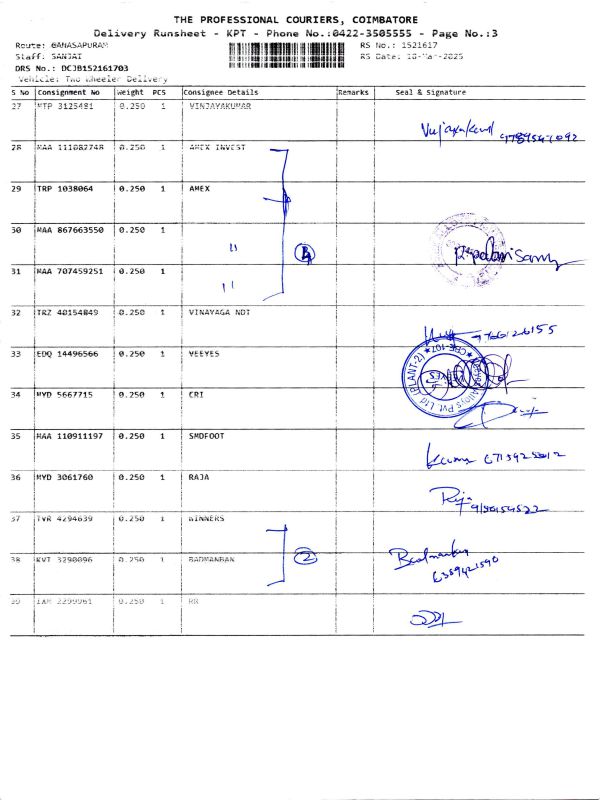 THE PROFESSIONAL COURIERS, COIMBATORE
Delivery Runsheet - KPT - Phone No.:0422-3505555 - Page No.:3
Route: GANASAPURAM RS No.: 1521617
Staff: SANJAI RS Date: 10-Mar-2025
DRS No.: DCJB152161703
Vehicle: Two Wheeler Delivery
S No Consignment No Weight PCS Consignee Details Remarks Seal & Signature
27 MTP 3125481 0.250 1 VINJAYAKUMAR
28 MAA 111082748 0.250 1 AMEX INVEST
29 TRP 1038064 0.250 1 AMEX
30 MAA 867663550 0.250 1 "
31 MAA 707459251 0.250 1 "
32 TRZ 40154849 0.250 1 VINAYAGA NDT
33 EDQ 14496566 0.250 1 VEEYES
34 MYD 5667715 0.250 1 CRI
35 MAA 110911197 0.250 1 SMDFOOT
36 MYD 3061760 0.250 1 RAJA
37 TVR 4294639 0.250 1 WINNERS
38 KVT 3290096 0.250 1 BADMANBAN 2
39 1 RR